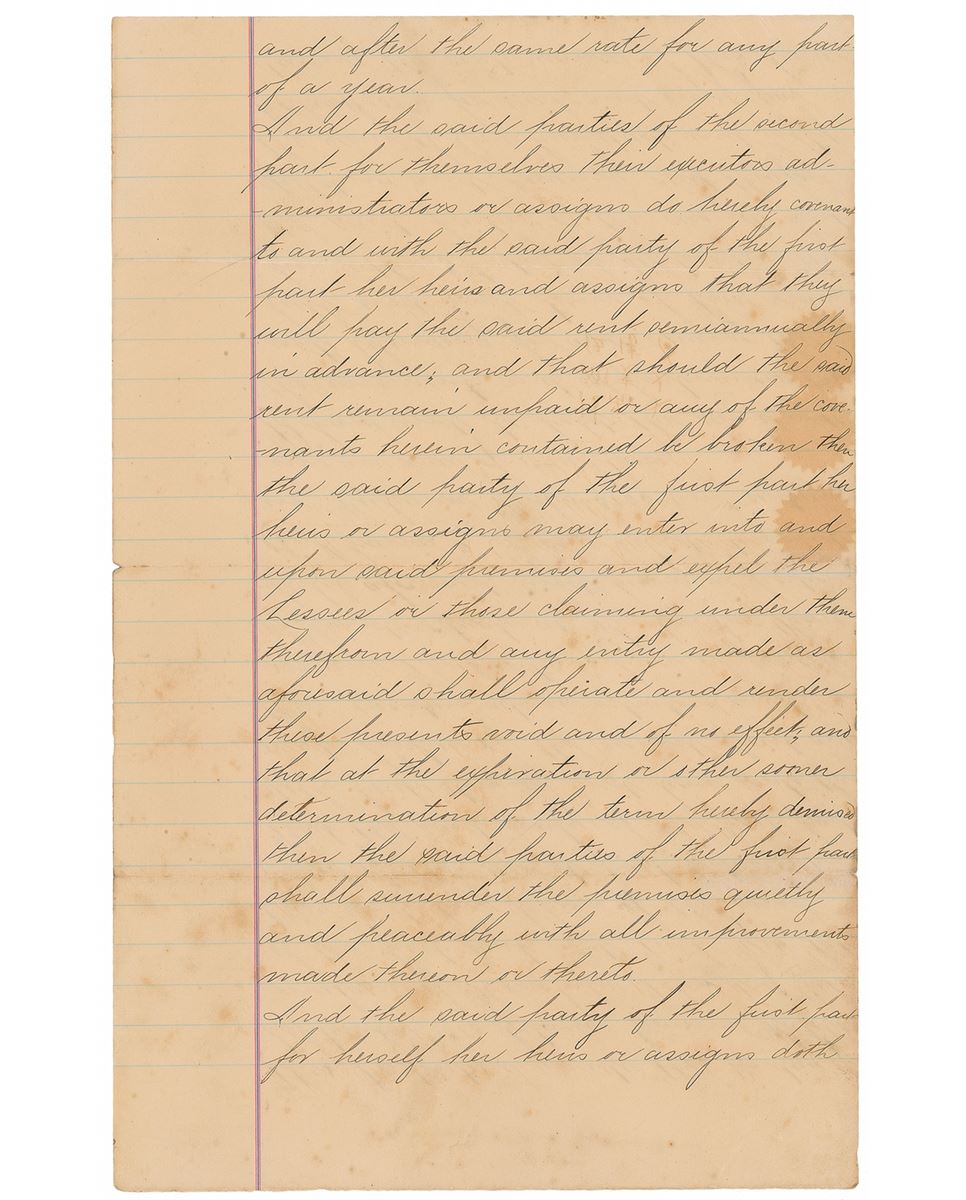 and after the same rate for any part
of a year.
And the said parties of the second
part for themselves their executors ad-
-ministrators or assigns do hereby covenant
to and with the said party of the first
part her heirs and assigns that they
will pay the said rent semiannually
in advance; and that should the said
rent remain unpaid or any of the cove-
nants herein contained be broken then
the said party of the first part her
heirs or assigns may enter into and
upon said premises and expel the
Lessees or those claiming under them
therefrom and any entry made as
aforesaid shall operate and render
these presents void and of no effect; and
that at the expiration or other sooner
determination of the term hereby demised
then the said parties of the first part
shall surrender the premises quietly
and peaceably with all improvements
made thereon or thereto.
And the said party of the first part
for herself her heirs or assigns doth